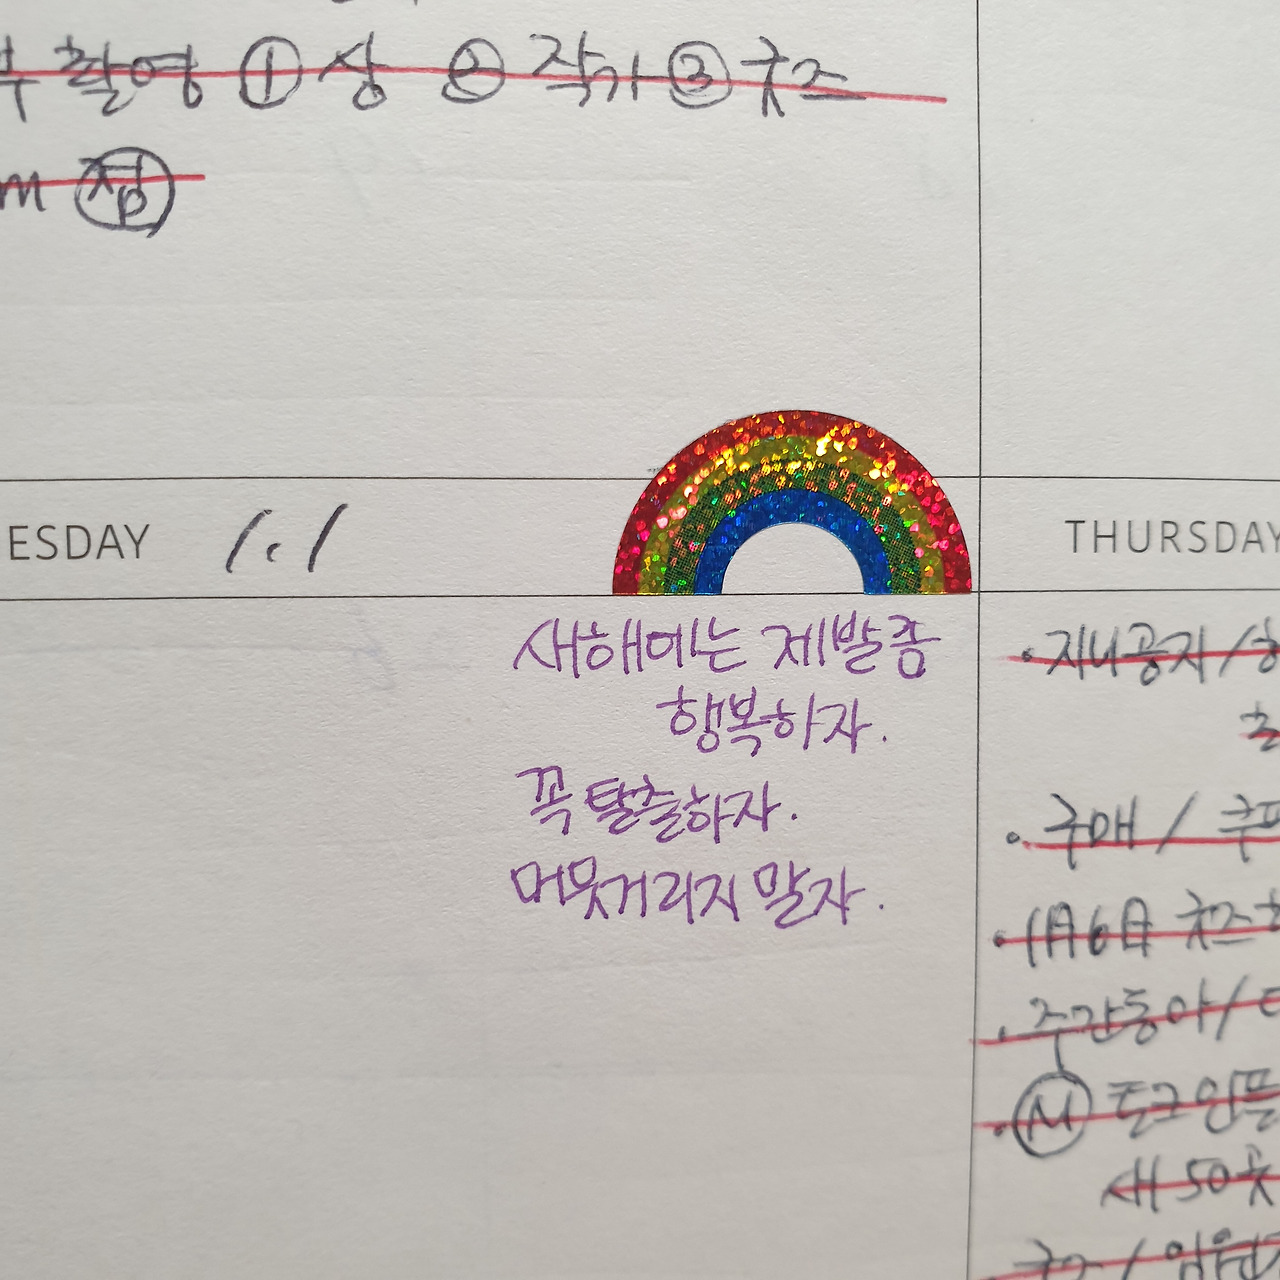 촬영 ① 상 ② 작가 ③ 굿즈
m 점p
ESDAY 1.1
새해에는 제발 좀
행복하자.
꼭 탈출하자.
머뭇거리지 말자.
THURSDAY
· 지니공지 /
· 구매 /
굿즈
· 주간동아 /
· Ⓜ 토크
새 50곳